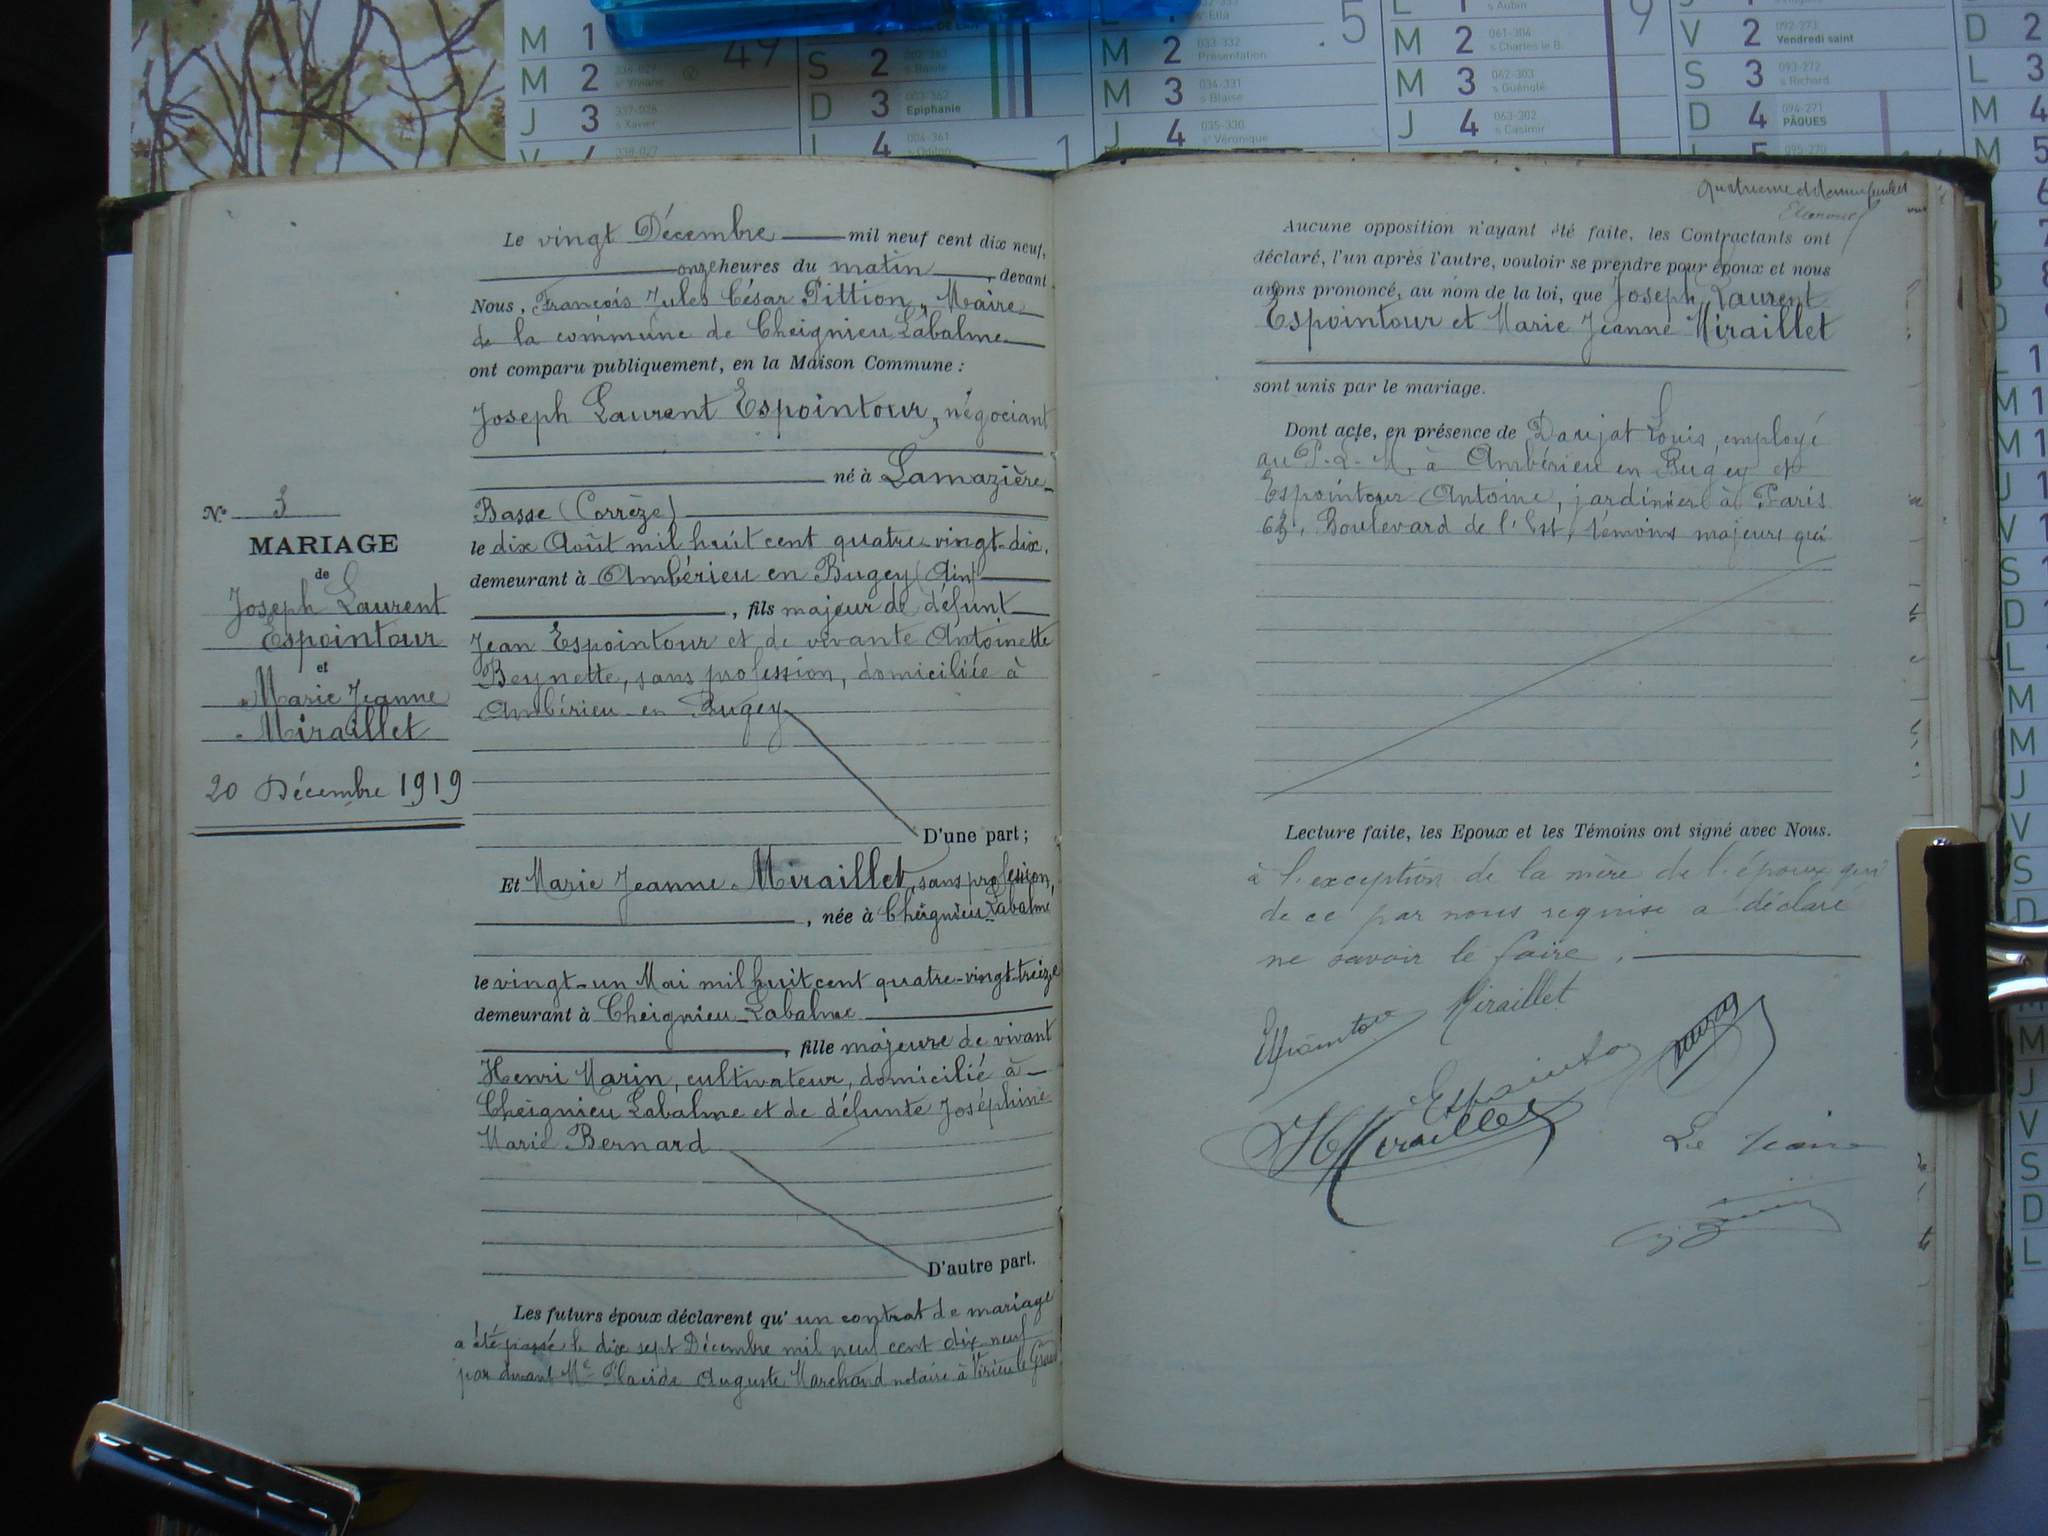 M 1
49
M 2 336-027
s Viviane
J 3 337-028
s Xavier
338-027
S 2 002-363
s Basile
D 3 003-362
Epiphanie
L 4 004-361
s Odilon
1
s Ella
M 2 033-332
Présentation
5
M 3 034-331
s Blaise
J 4 035-330
se Véronique
s Aubin
M 2 061-304
s Charles le B.
9
M 3 062-303
s Guénolé
J 4 063-302
s Casimir
V 2 092-273
Vendredi saint
S 3 093-272
s Richard
D 4 094-271
PÂQUES
095-270
D 2
L 3
M 4
M 5
Le vingt Décembre mil neuf cent dix neuf,
onze heures du matin, devant
Nous, François Jules César Pittion, Maire
de la commune de Cheignieu Labalme
ont comparu publiquement, en la Maison Commune :
Joseph Laurent Espointour, négociant
né à Lamazière-
Basse (Corrèze)
le dix Août mil huit cent quatre-vingt-dix,
demeurant à Ambérieu en Bugey (Ain)
, fils majeur de défunt
Jean Espointour et de vivante Antoinette
Beynette, sans profession, domiciliée à
Ambérieu-en Bugey
D'une part ;
N° 3
MARIAGE
de
Joseph Laurent
Espointour
et
Marie Jeanne
Miraillet
20 Décembre 1919
Et Marie Jeanne Miraillet, sans profession,
, née à Cheignieu Labalme
le vingt-un Mai mil huit cent quatre-vingt-treize
demeurant à Cheignieu-Labalme
, fille majeure de vivant
Henri Marin, cultivateur, domicilié à
Cheignieu Labalme et de défunte Joséphine
Marie Bernard
D'autre part.
Les futurs époux déclarent qu'un contrat de mariage
a été passé le dix sept Décembre mil neuf cent dix neuf
par devant Me Placide Auguste Marchand notaire à Virieu le Grand
Aucune opposition n'ayant été faite, les Contractants ont
déclaré, l'un après l'autre, vouloir se prendre pour époux et nous
avons prononcé, au nom de la loi, que Joseph Laurent
Espointour et Marie Jeanne Miraillet
sont unis par le mariage.
Dont acte, en présence de Daujat Louis, employé
au P.-L.-M. à Ambérieu en Bugey et
Espointour Antoine, jardinier à Paris
Boulevard de l'Est, témoins majeurs qui
Lecture faite, les Epoux et les Témoins ont signé avec Nous.
à l'exception de la mère de l'époux qui
de ce par nous requise a déclaré
ne savoir le faire.
Espointour Miraillet
Espointour
H Miraillet
Le Maire